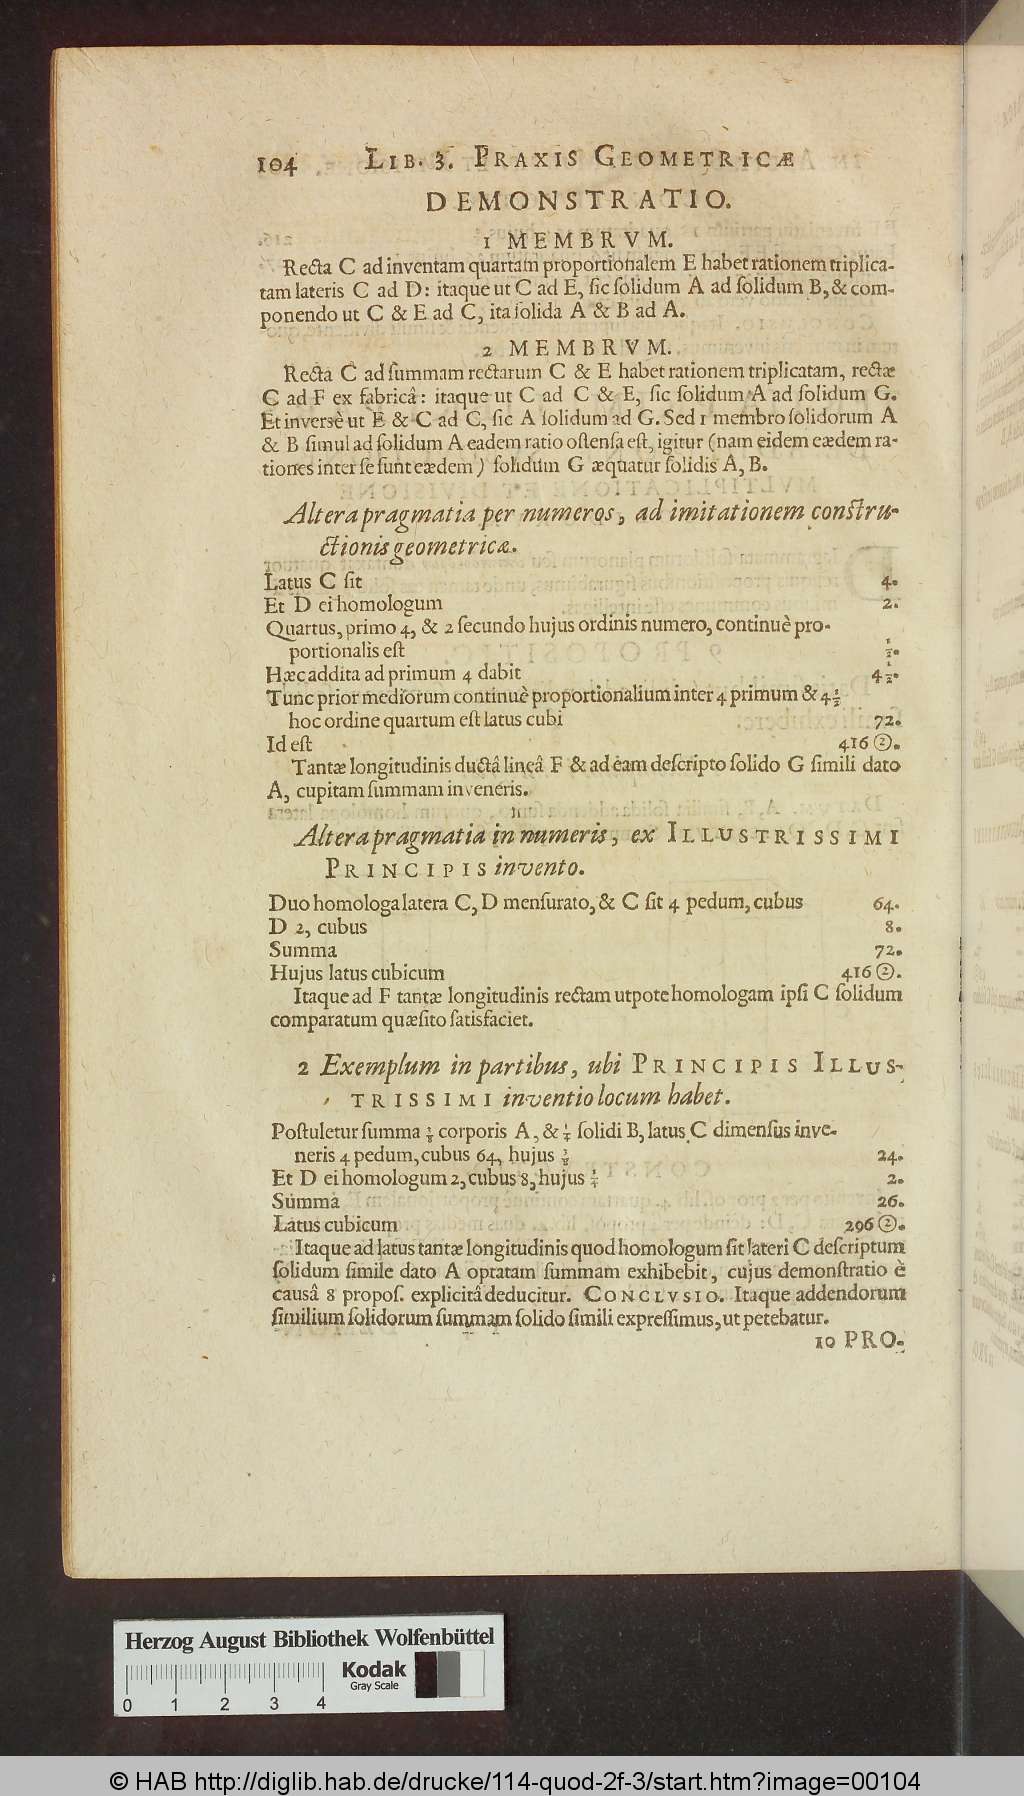 104 LIB. 3. PRAXIS GEOMETRICÆ
DEMONSTRATIO.
1 MEMBRVM.
Recta C ad inventam quartam proportionalem E habet rationem triplica-
tam lateris C ad D: itaque ut C ad E, ſic ſolidum A ad ſolidum B, & com-
ponendo ut C & E ad C, ita ſolida A & B ad A.
2 MEMBRVM.
Recta C ad ſummam rectarum C & E habet rationem triplicatam, rectæ
C ad F ex fabricâ: itaque ut C ad C & E, ſic ſolidum A ad ſolidum G.
Et inversè ut E & C ad C, ſic A ſolidum ad G. Sed 1 membro ſolidorum A
& B ſimul ad ſolidum A eadem ratio oſtenſa eſt, igitur (nam eidem eædem ra-
tiones inter ſe ſunt eædem) ſolidum G æquatur ſolidis A, B.
Altera pragmatia per numeros, ad imitationem conſtru-
ctionis geometricæ.
Latus C ſit 4.
Et D ei homologum 2.
Quartus, primo 4, & 2 ſecundo hujus ordinis numero, continuè pro-
portionalis eſt 1/2.
Hæc addita ad primum 4 dabit 4 1/2.
Tunc prior mediorum continuè proportionalium inter 4 primum & 4 1/2
hoc ordine quartum eſt latus cubi 72.
Id eſt 416 ②.
Tantæ longitudinis ductâ lineâ F & ad eam deſcripto ſolido G ſimili dato
A, cupitam ſummam inveneris.
Altera pragmatia in numeris, ex ILLUSTRISSIMI
PRINCIPIS invento.
Duo homologa latera C, D menſurato, & C ſit 4 pedum, cubus 64.
D 2, cubus 8.
Summa 72.
Hujus latus cubicum 416 ②.
Itaque ad F tantæ longitudinis rectam utpote homologam ipſi C ſolidum
comparatum quæſito ſatisfaciet.
2 Exemplum in partibus, ubi PRINCIPIS ILLUS-
TRISSIMI inventio locum habet.
Poſtuletur ſumma corporis A, & 1/4 ſolidi B, latus C dimenſus inve-
neris 4 pedum, cubus 64, hujus 24.
Et D ei homologum 2, cubus 8, hujus 1/4 2.
Summa 26.
Latus cubicum 296 ②.
Itaque ad latus tantæ longitudinis quod homologum ſit lateri C deſcriptum
ſolidum ſimile dato A optatam ſummam exhibebit, cujus demonſtratio è
causâ 8 propoſ. explicitâ deducitur. CONCLVSIO. Itaque addendorum
ſimilium ſolidorum ſummam ſolido ſimili expreſſimus, ut petebatur.
10 PRO-
Herzog August Bibliothek Wolfenbüttel
Kodak
Gray Scale
0 1 2 3 4
© HAB http://diglib.hab.de/drucke/114-quod-2f-3/start.htm?image=00104